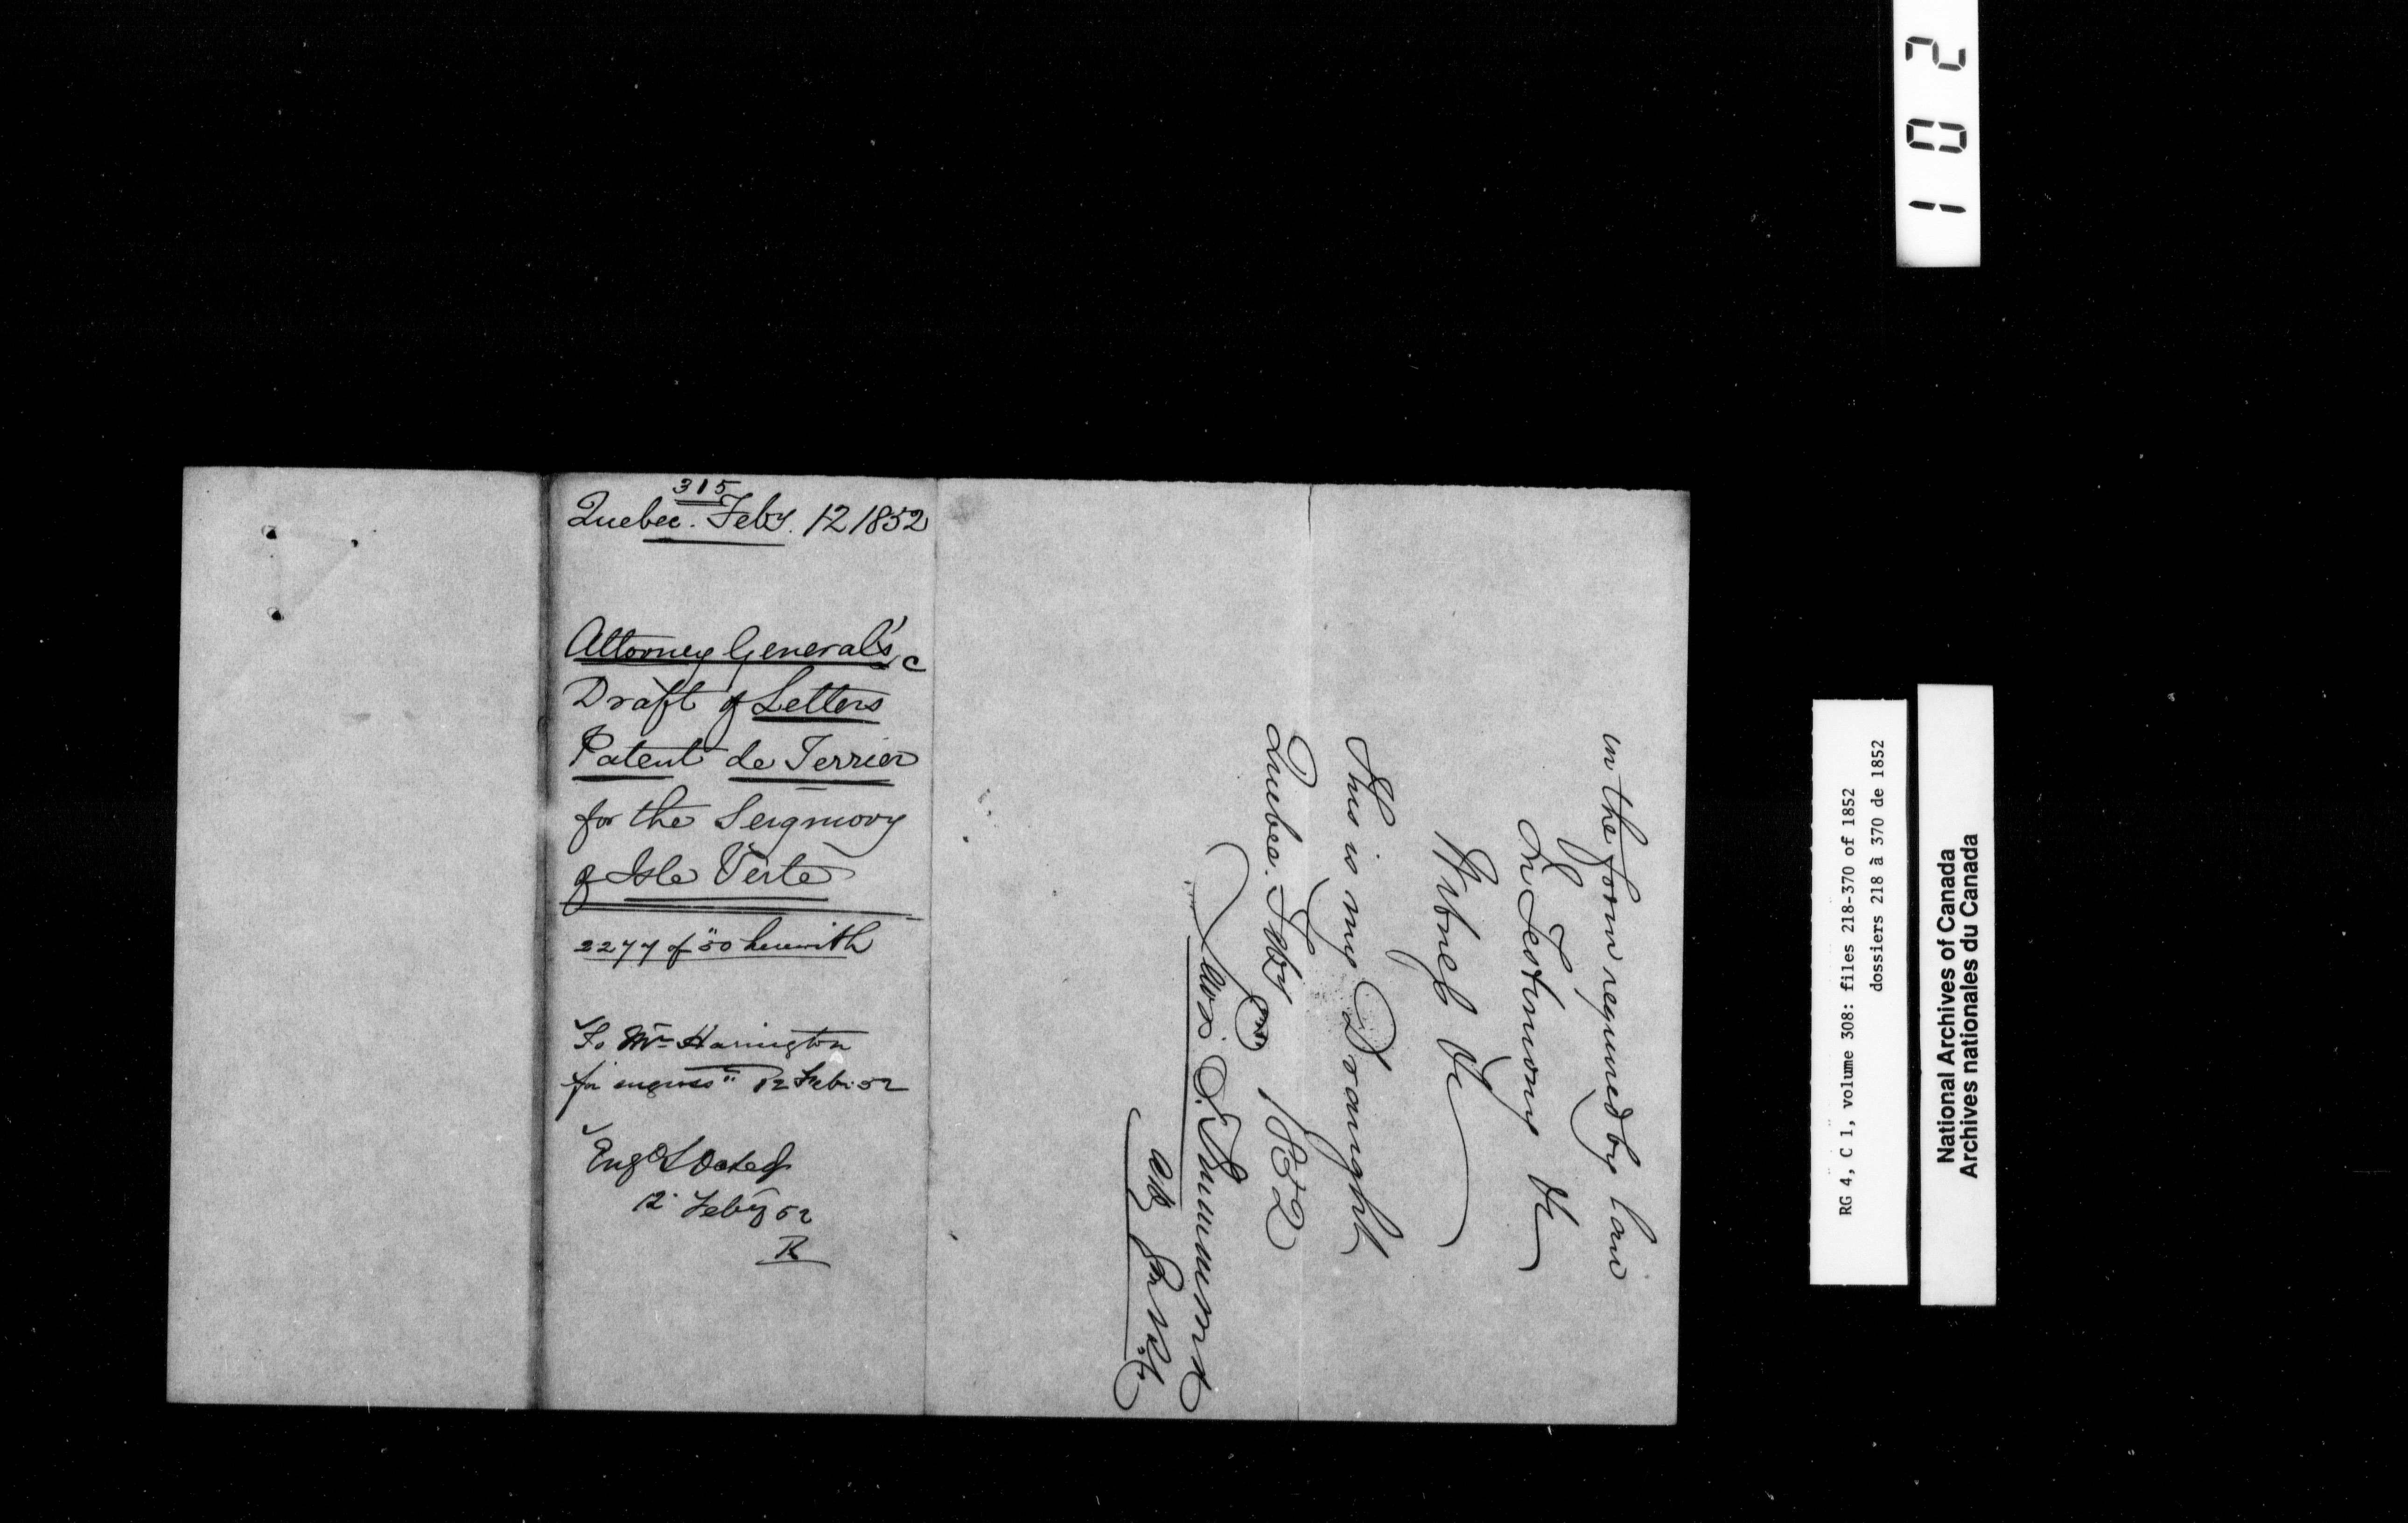 315
Quebec. Feby. 12 1852
Attorney General's
Draft of Letters
Patent de Terrier
for the Seigniory
of Isle Verte
2277 of "50 herewith
To Mr Harington
for engross" 12 Feb: 52
Engd & Dated
12 Feby 52
R
in the form required by law
In Testimony &c
Witness &c
This is my Draught
Quebec. Feby 1852
Drummond
Atty Genl
102
RG 4, C 1, volume 308: files 218-370 of 1852
dossiers 218 à 370 de 1852
National Archives of Canada
Archives nationales du Canada